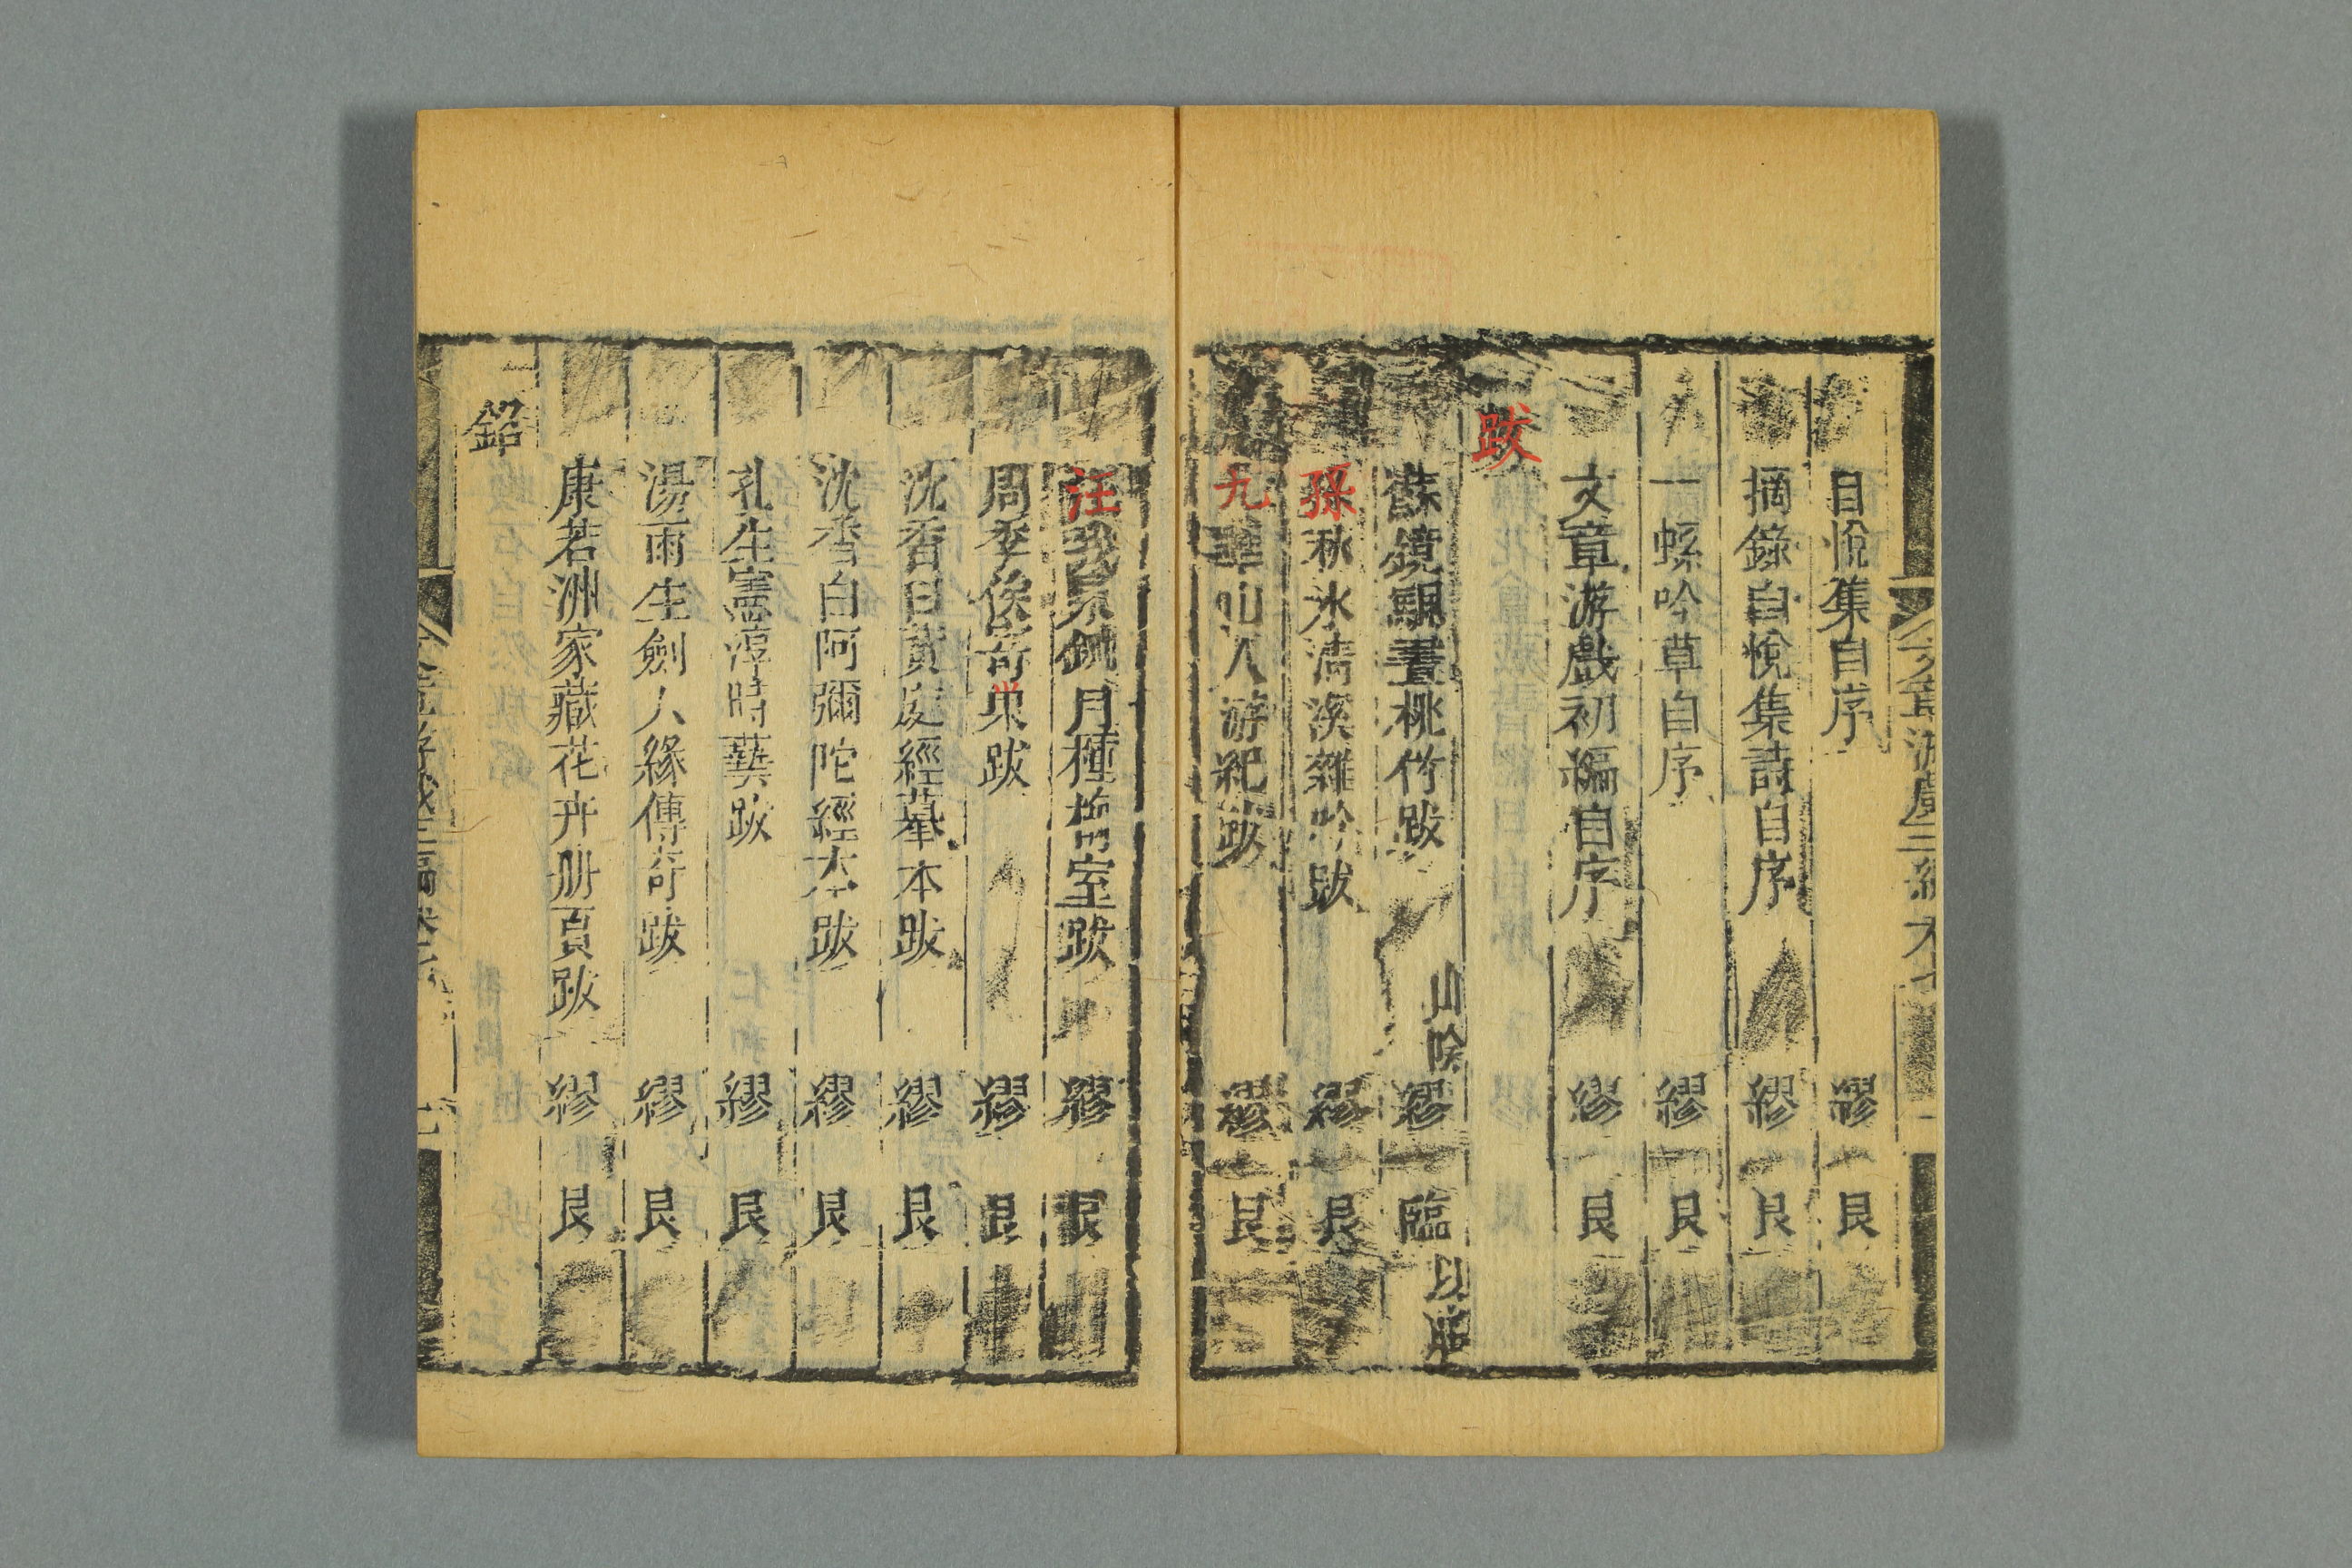 文章游戲三編 卷七
自悅集自序 繆 艮
摘錄自悅集詩自序 繆 艮
一螺吟草自序 繆 艮
文章游戲初編自序 繆 艮
跋
蘇鏡颿畫桃竹跋 山陰 繆 臨
孫秋水清溪雜吟跋 繆 艮
九華山人游記跋 繆 艮
汪 月種梅室跋 繆 艮
周季俟奇巢跋 繆 艮
沈香白黃庭經摹本跋 繆 艮
沈香白阿彌陀經本跋 繆 艮
孔生憲淳時藝跋 繆 艮
湯雨生劍人緣傳奇跋 繆 艮
康若洲家藏花卉册頁跋 繆 艮
銘